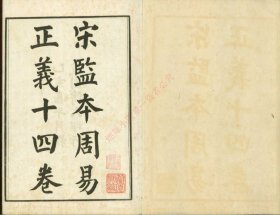 宋監本周易
正義十四卷